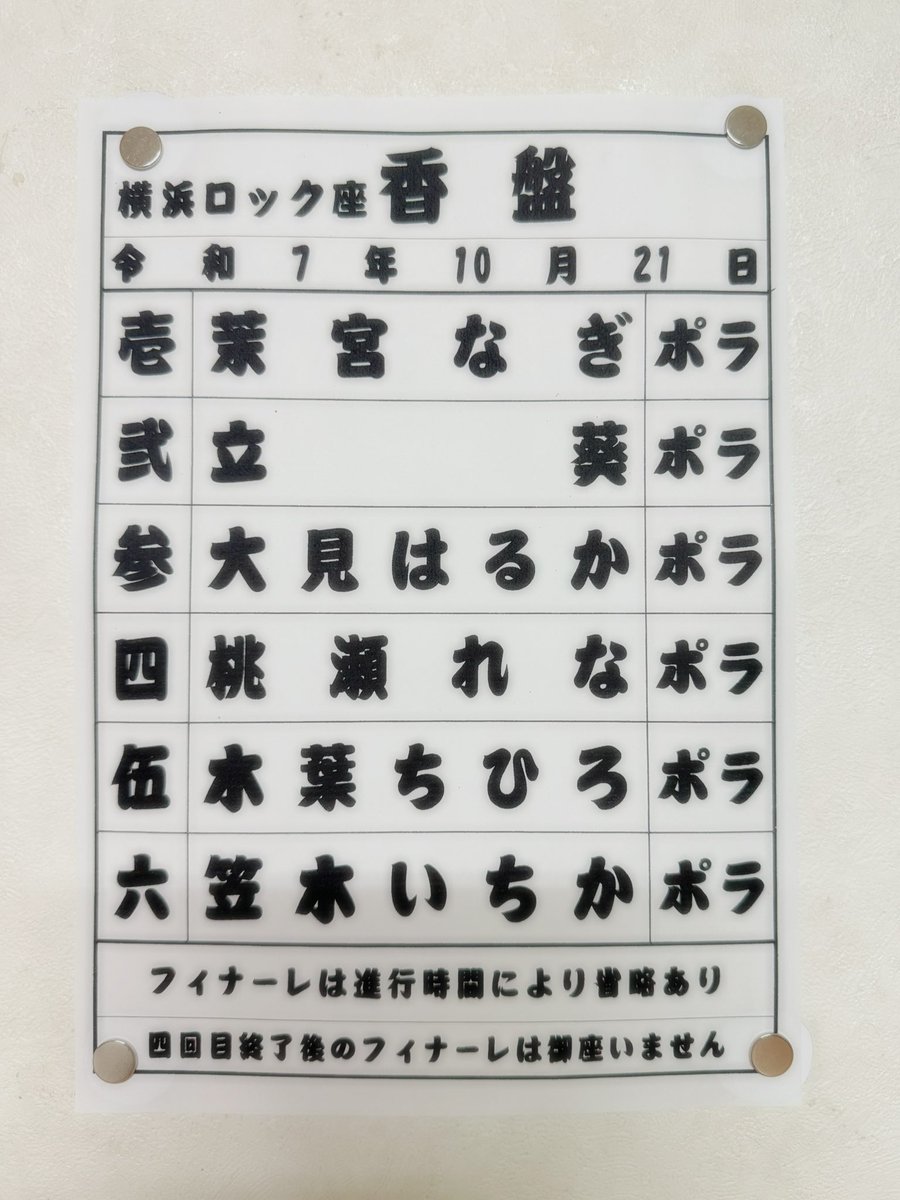 横浜ロック座 香盤
令和7年10月21日
壱 茉宮なぎ ポラ
弐 立 葵 ポラ
参 大見はるか ポラ
四 桃瀬れな ポラ
伍 木葉ちひろ ポラ
六 笠木いちか ポラ
フィナーレは進行時間により省略あり
四回目終了後のフィナーレは御座いません